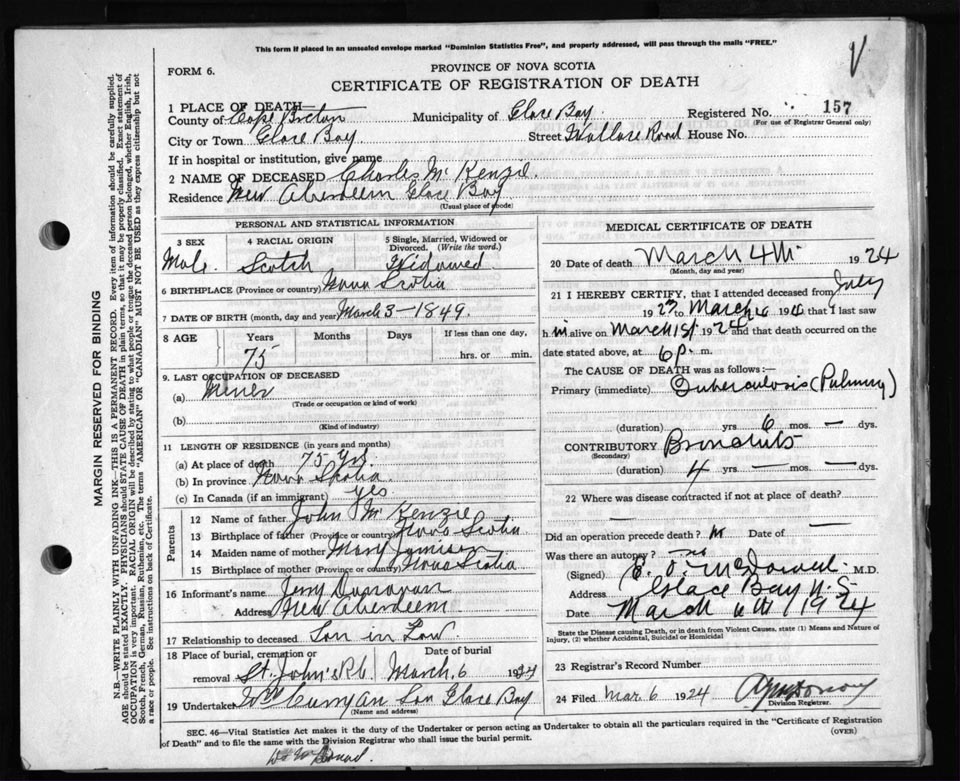 This form if placed in an unsealed envelope marked "Dominion Statistics Free", and properly addressed, will pass through the mails "FREE."
FORM 6.
PROVINCE OF NOVA SCOTIA
CERTIFICATE OF REGISTRATION OF DEATH
1 PLACE OF DEATH—
County of Cape Breton Municipality of Glace Bay Registered No. 157
(For use of Registrar General only)
City or Town Glace Bay Street Wallace Road House No.
If in hospital or institution, give name
2 NAME OF DECEASED Charles McKenzie.
Residence New Aberdeen Glace Bay
(Usual place of abode)
PERSONAL AND STATISTICAL INFORMATION
3 SEX 4 RACIAL ORIGIN 5 Single, Married, Widowed or Divorced. (Write the word.)
Male Scotch Widowed
6 BIRTHPLACE (Province or country) Nova Scotia
7 DATE OF BIRTH (month, day and year) March 3 - 1849.
8 AGE Years Months Days If less than one day,
75 hrs. or min.
9. LAST OCCUPATION OF DECEASED
(a) Miner
(Trade or occupation or kind of work)
(b)
(Kind of industry)
11 LENGTH OF RESIDENCE (in years and months)
(a) At place of death 75 yrs.
(b) In province Nova Scotia.
(c) In Canada (if an immigrant) yes.
Parents
12 Name of father John McKenzie
13 Birthplace of father (Province or country) Nova Scotia
14 Maiden name of mother Mary Jamison
15 Birthplace of mother (Province or country) Nova Scotia
16 Informant's name Jerry Donovan
Address New Aberdeen
17 Relationship to deceased Son in Law.
18 Place of burial, cremation or removal Date of burial
St. John's March 6 1924
19 Undertaker Son Glace Bay
(Name and address)
MEDICAL CERTIFICATE OF DEATH
20 Date of death March 4th 1924
(Month, day and year)
21 I HEREBY CERTIFY, that I attended deceased from July
1923 to March 1924 that I last saw
him alive on March 1st 1924 and that death occurred on the
date stated above, at 6 p. m.
The CAUSE OF DEATH was as follows:—
Primary (immediate) Tuberculosis
(duration) yrs 6 mos. — dys.
CONTRIBUTORY Bronchitis
(Secondary)
(duration) 4 yrs. — mos. — dys.
22 Where was disease contracted if not at place of death?
—
Did an operation precede death? Date of —
Was there an autopsy? no
(Signed) M.D.
Address Glace Bay N.S
Date March 6th 1924
State the Disease causing Death, or in death from Violent Causes, state (1) Means and Nature of Injury, (2) whether Accidental, Suicidal or Homicidal
23 Registrar's Record Number
24 Filed Mar. 6 1924
Division Registrar.
SEC. 46—Vital Statistics Act makes it the duty of the Undertaker or person acting as Undertaker to obtain all the particulars required in the "Certificate of Registration of Death" and to file the same with the Division Registrar who shall issue the burial permit.
(OVER)
MARGIN RESERVED FOR BINDING
N.B.—WRITE PLAINLY WITH UNFADING INK—THIS IS A PERMANENT RECORD. Every item of information should be carefully supplied.
AGE should be stated EXACTLY. PHYSICIANS should STATE CAUSE OF DEATH in plain terms, so that it may be properly classified. Exact statement of
OCCUPATION is very important. RACIAL ORIGIN will be described by stating to what people or tongue the deceased person belonged, whether English, Irish,
Scotch, French, German, Russian, Ruthenian, etc. The terms "AMERICAN" or "CANADIAN" MUST NOT BE USED as they express citizenship but not
a race or people. See instructions on back of Certificate.